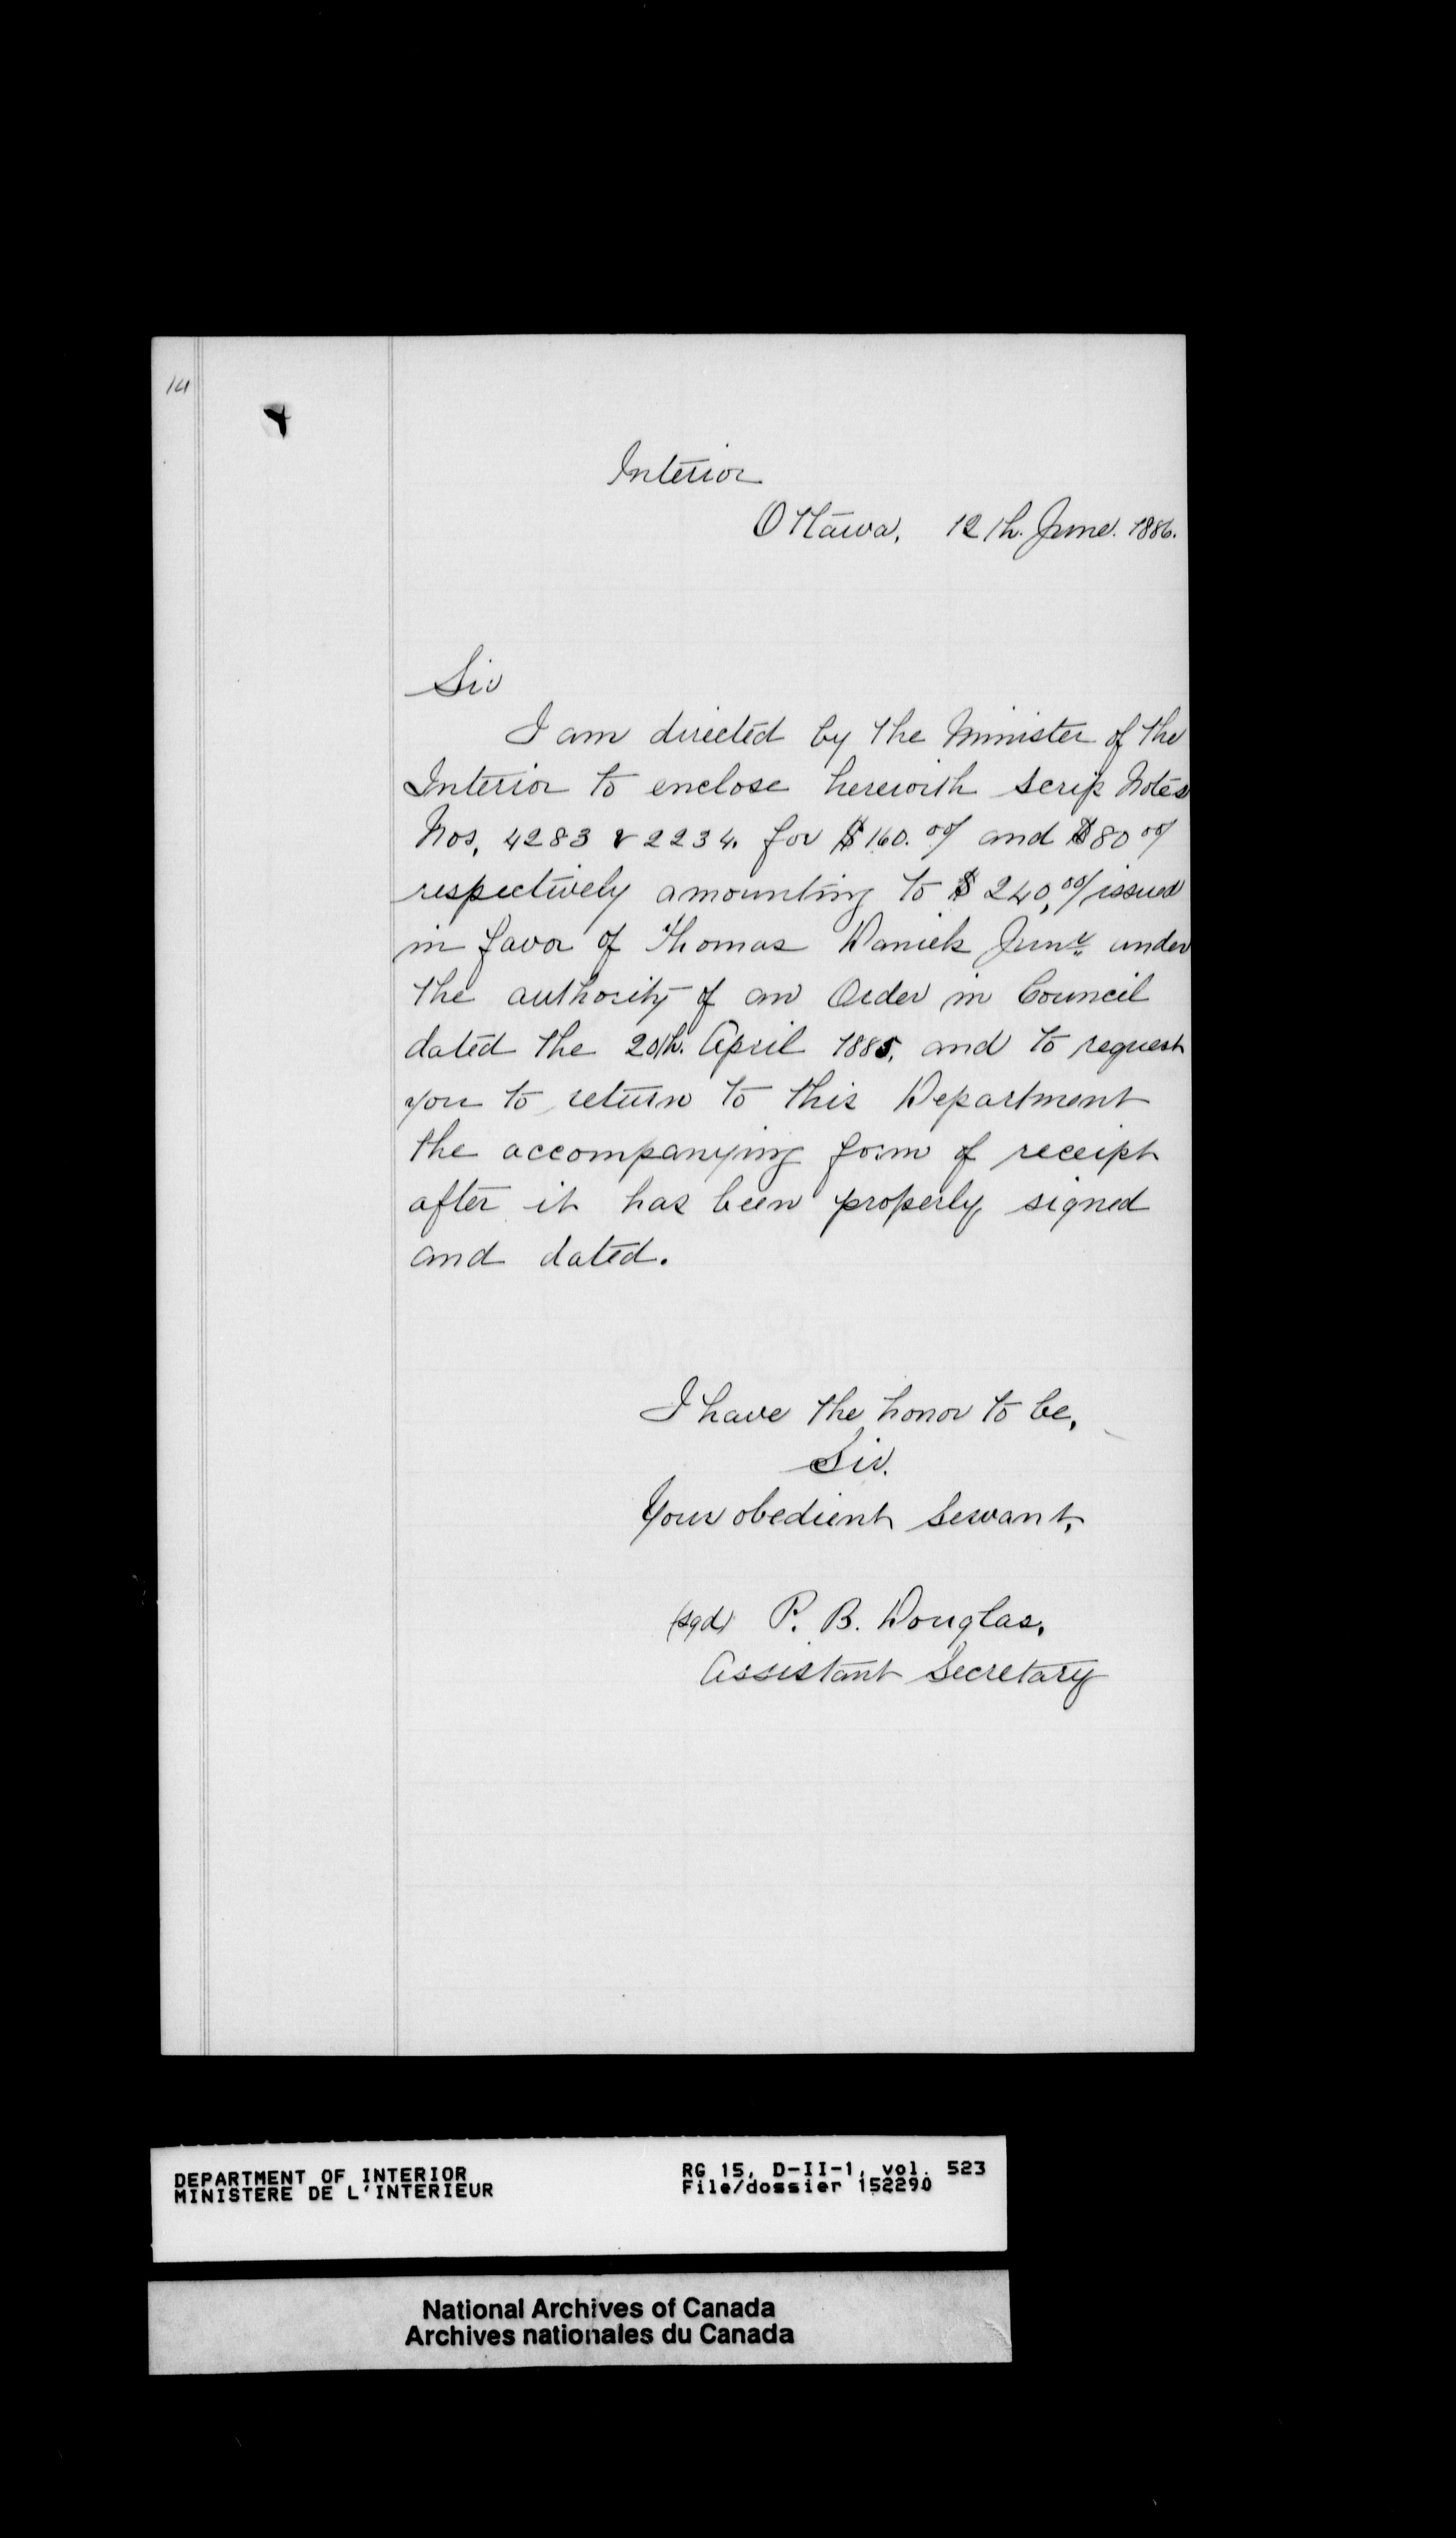 14
Interior
Ottawa, 12th. June. 1886.
Sir
I am directed by the Minister of the
Interior to enclose herewith scrip Notes
Nos, 4283 & 2234. for $160.00/ and $80 00/
respectively amounting to $240,00/ issued
in favor of Thomas Daniels Junr under
the authority of an Order in Council
dated the 20th. April 1885, and to request
you to return to this Department
the accompanying form of receipt
after it has been properly signed
and dated.
I have the honor to be,
Sir.
Your obedient servant,
(sgd) P. B. Douglas,
Assistant Secretary
DEPARTMENT OF INTERIOR
MINISTERE DE L'INTERIEUR
RG 15, D-II-1, vol. 523
File/dossier 152290
National Archives of Canada
Archives nationales du Canada